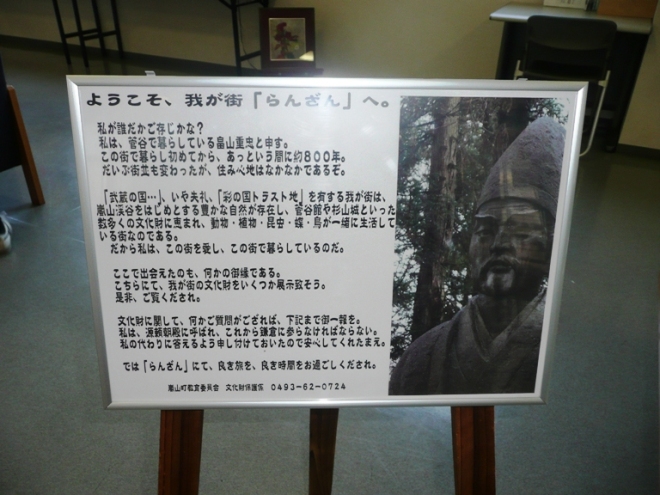 ようこそ、我が街「らんざん」へ。
私が誰だかご存じかな?
私は、菅谷で暮らしている畠山重忠と申す。
この街で暮らし初めてから、あっという間に約800年。
だいぶ街並も変わったが、住み心地はなかなかであるぞ。
「武蔵の国…」、いや失礼、「彩の国トラスト地」を有する我が街は、
嵐山渓谷をはじめとする豊かな自然が存在し、菅谷館や杉山城といった
数多くの文化財に恵まれ、動物・植物・昆虫・蝶・鳥が一緒に生活して
いる街なのである。
だから私は、この街を愛し、この街で暮らしているのだ。
ここで出会えたのも、何かの御縁である。
こちらにて、我が街の文化財をいくつか展示致そう。
是非、ご覧くだされ。
文化財に関して、何かご質問がござれば、下記まで御一報を。
私は、源頼朝殿に呼ばれ、これから鎌倉に参らなければならない。
私の代わりに答えるよう申し付けておいたので安心してくれたまえ。
では「らんざん」にて、良き旅を、良き時間をお過ごしくだされ。
嵐山町教育委員会 文化財保護係 0493-62-0724